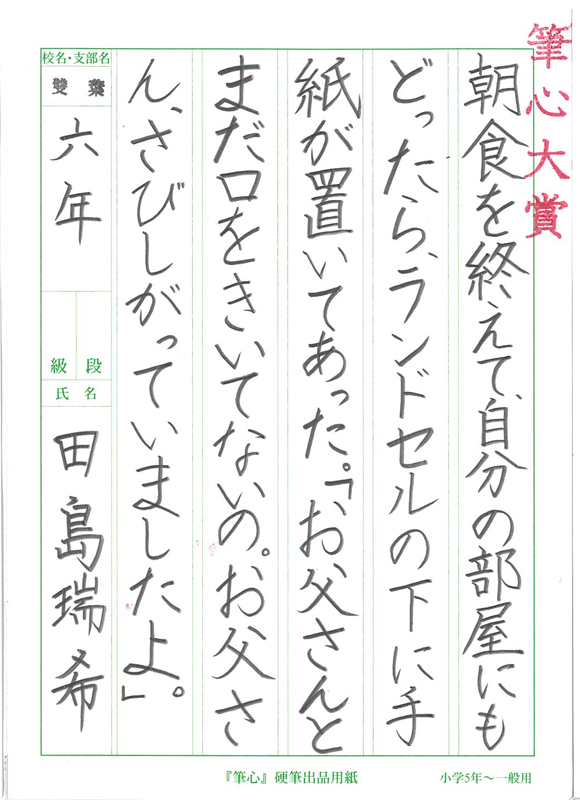 筆心大賞
朝食を終えて、自分の部屋にも
どったら、ランドセルの下に手
紙が置いてあった。「お父さんと
まだ口をきいてないの。お父さ
ん、さびしがっていましたよ」。
校名・支部名
雙葉
六年
段
級
氏名
田島瑞希
『筆心』硬筆出品用紙
小学5年～一般用